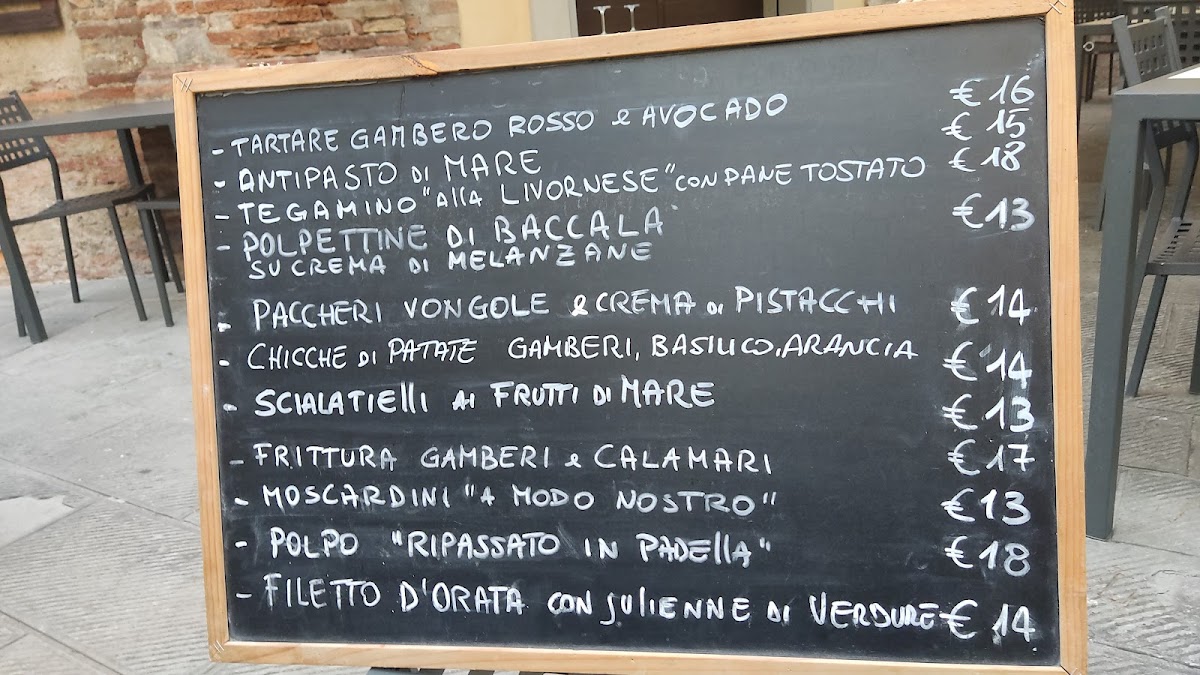 - TARTARE GAMBERO ROSSO e AVOCADO € 16
- ANTIPASTO di MARE € 15
- TEGAMINO "Alla LIVORNESE" CON PANE TOSTATO € 18
- POLPETTINE DI BACCALA € 13
SU CREMA DI MELANZANE
- PACCHERI VONGOLE e CREMA di PISTACCHI € 14
- CHICCHE di PATATE GAMBERI, BASILICO, ARANCIA € 14
- SCIALATIElli AI FRUTTI DI MARE € 13
- FRITTURA GAMBERI e CALAMARI € 17
- MOSCARDINI "A MODO NOSTRO" € 13
- POLPO "RIPASSATO IN PADElla" € 18
- FILETTO D'ORATA CON JULIENNE DI VERDURE € 14